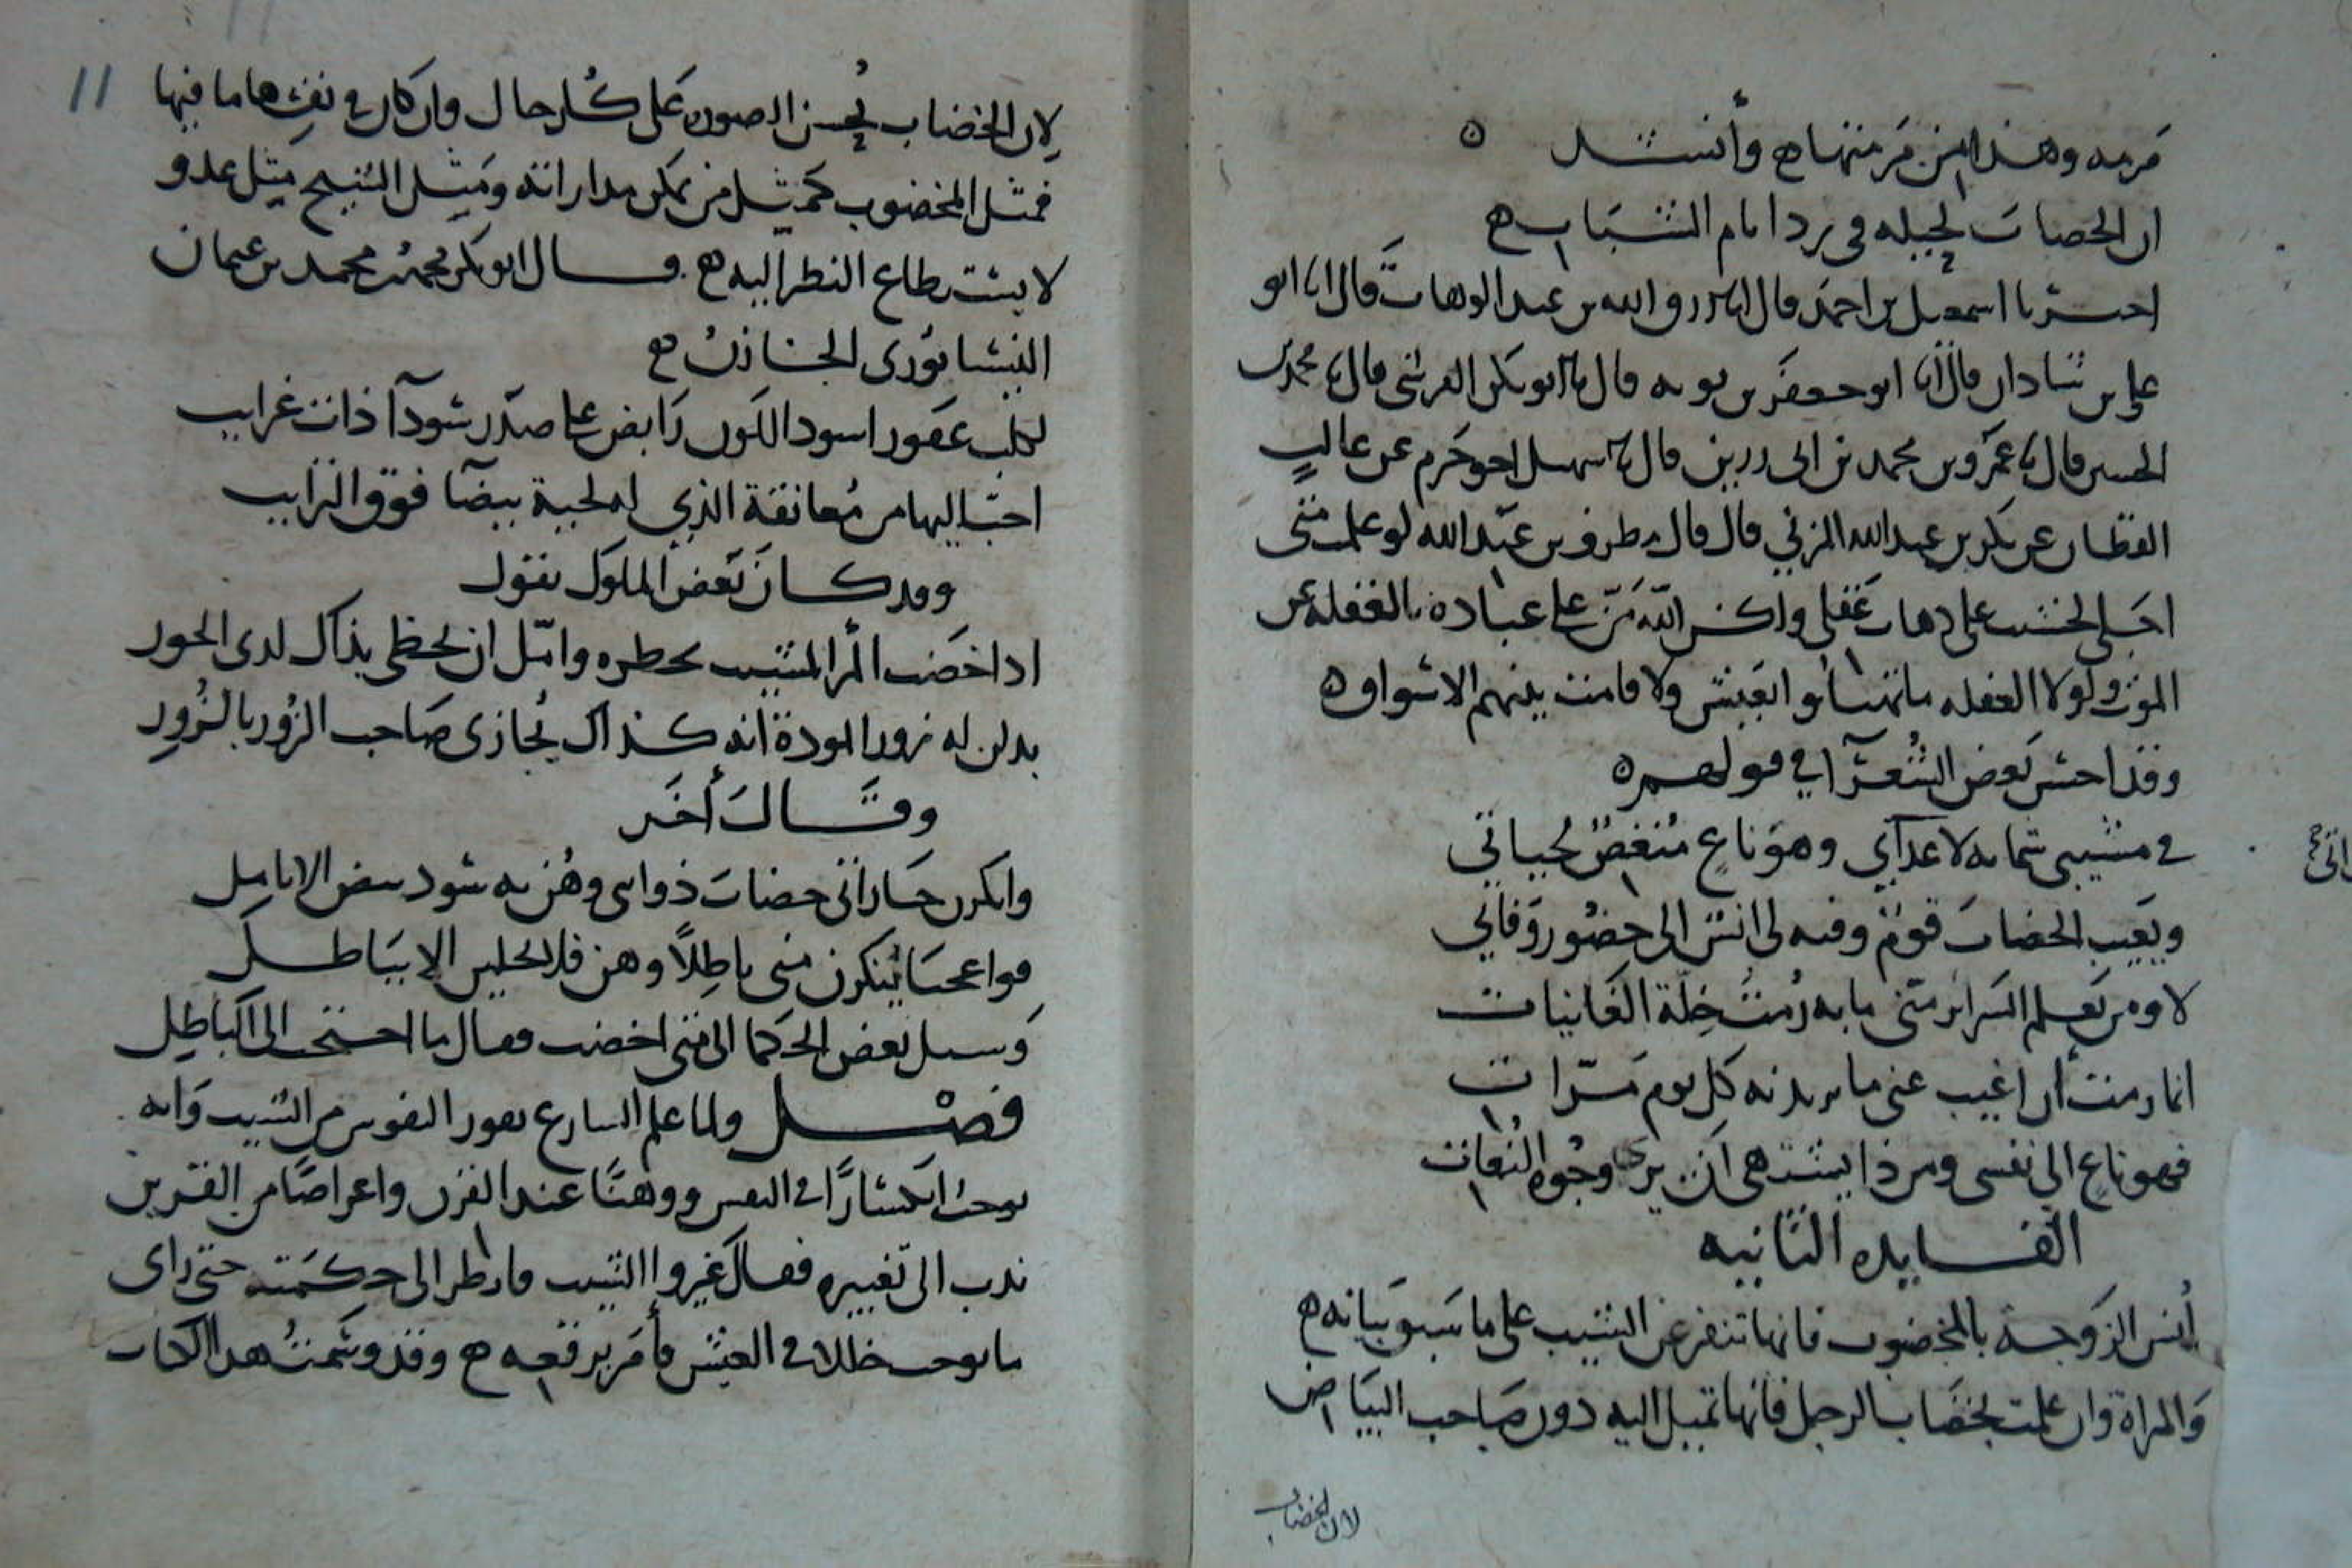 مرمه وهذا من مرمتها ه وأنشد ه
ان الخضاب لحيله في رد ايام الشباب ه
اخبرنا اسمعيل بن احمد قال انا رزق الله بن عبد الوهاب قال انا ابو
علي بن شادان قال انا ابو جعفر بن بويه قال نا ابو بكر القرشي قال نا محمد بن
الحسين قال نا عمرو بن محمد بن ابي رزين قال نا سهيل اخو حزم عن غالب
القطان عن بكر بن عبد الله المزني قال قال مطرف بن عبد الله لو علمت متى
اجلي لخشيت على ذهاب عقلي ولكن الله مَنّ على عباده بالغفله عن
الموت ولولا الغفله ما تهنأوا العيش ولا قامت بينهم الاسواق ه
وقد احسن بعض الشعرآ في قولهم ه
في مشيبي شماته لاعدآي وهو ناع منغص لحياتي
ويعيب الخضاب قوم وفيه لي انس الى حضور وفاتي
لا ومن يعلم السرائر منى ما به رمت خلة الغانيات
انما رمت أن اغيب عنى ما يريدنه كل يوم مرّات
فهو ناع الي نفسى ومن ذا يشتهى ان يرى وجوه النعات
الفايده الثانيه
أنس الزوجة بالمخضوب فانها تنفر عن الشيب على ما سبق بيانه ه
والمراة وان علمت بخضاب الرجل فانها تميل اليه دون صاحب البياض
لان الخضاب
11
لان الخضاب يحسن الصورة على كل حال وان كان في نفسها ما فيها
فمثل المخضوب كمثل من يمكن مداراته ومثل الشيخ مثل عدو
لا يستطاع النظر اليه ه قال ابو بكر محمد بن عثمان
النيسابوري الخازن ه
لكلب عقور اسود اللون رابض على صدر سودآ ذات غرايب
احب اليها من معانقة الذي له لحية بيضآ فوق الترايب
وقد كان بعض الملوك يقول
اذا خضب المرأ المشيب بخطره وامّل ان يحظى بذاك لدى الحور
بدلن له زور المودة انه كذاك يجازى صاحب الزور بالزور
وقال أخر
وانكرن جاراتى خضاب ذوابي وهن به سود بيض الانامل
فواعجبا ينكرن منى باطلاً وهن قد الاباطل
وسيل بعض الحكما الى متى اخضب فقال ما احتجت الى اباطيل
فصل ولما علم الشارع نفور النفوس من الشيب وانه
يوجب انكسارًا في النفس ووهنًا عند القرن واعراضًا من القرين
ندب الى تغييره فقال غيروا الشيب فانظر الى حكمته حتى راى
ما يوجب خللا في العيش فأمر برقعه ه وقد وسمت هذا الكتاب